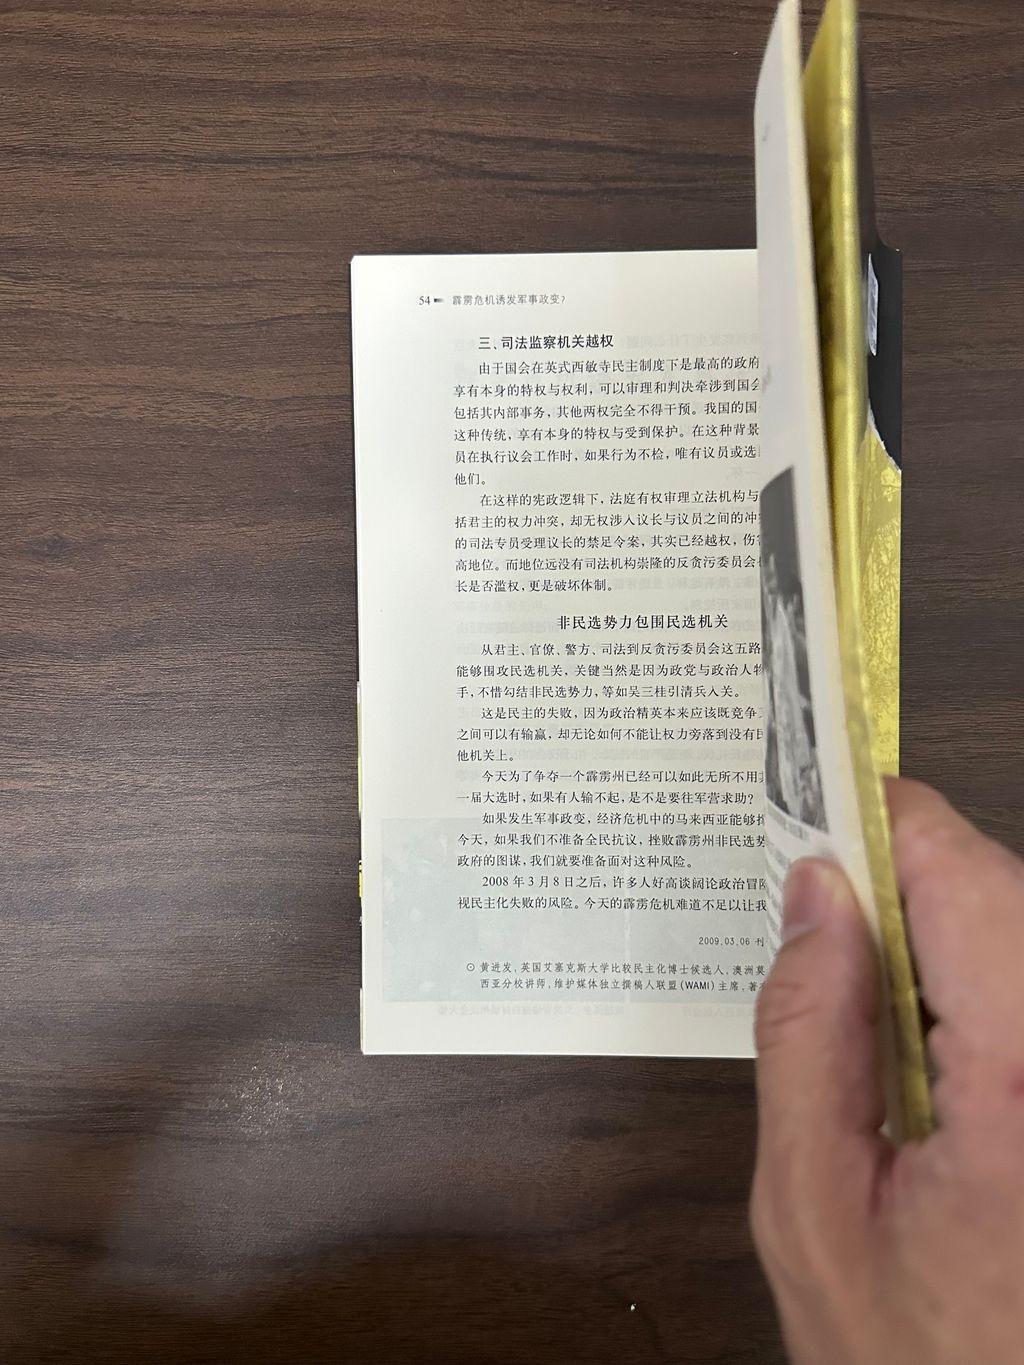 54 霹雳危机诱发军事政变？
三、司法监察机关越权
由于国会在英式西敏寺民主制度下是最高的政府
享有本身的特权与权利，可以审理和判决牵涉到国会
包括其内部事务，其他两权完全不得干预。我国的国
这种传统，享有本身的特权与受到保护。在这种背景
员在执行议会工作时，如果行为不检，唯有议员或选
他们。
在这样的宪政逻辑下，法庭有权审理立法机构与
括君主的权力冲突，却无权涉入议长与议员之间的冲
的司法专员受理议长的禁足令案，其实已经越权，伤
高地位。而地位远没有司法机构崇隆的反贪污委员会
长是否滥权，更是破坏体制。
非民选势力包围民选机关
从君主、官僚、警方、司法到反贪污委员会这五路
能够围攻民选机关，关键当然是因为政党与政治人物
手，不惜勾结非民选势力，等如吴三桂引清兵入关。
这是民主的失败，因为政治精英本来应该既竞争
之间可以有输赢，却无论如何不能让权力旁落到没有民
他机关上。
今天为了争夺一个霹雳州已经可以如此无所不用
一届大选时，如果有人输不起，是不是要往军营求助？
如果发生军事政变，经济危机中的马来西亚能够
今天，如果我们不准备全民抗议，挫败霹雳州非民选势
政府的图谋，我们就要准备面对这种风险。
2008 年 3 月 8 日之后，许多人好高谈阔论政治冒险
视民主化失败的风险。今天的霹雳危机难道不足以让我
2009.03.06 刊
⊙ 黄进发，英国艾塞克斯大学比较民主化博士候选人，澳洲莫
西亚分校讲师，维护媒体独立撰稿人联盟（WAMI）主席，著